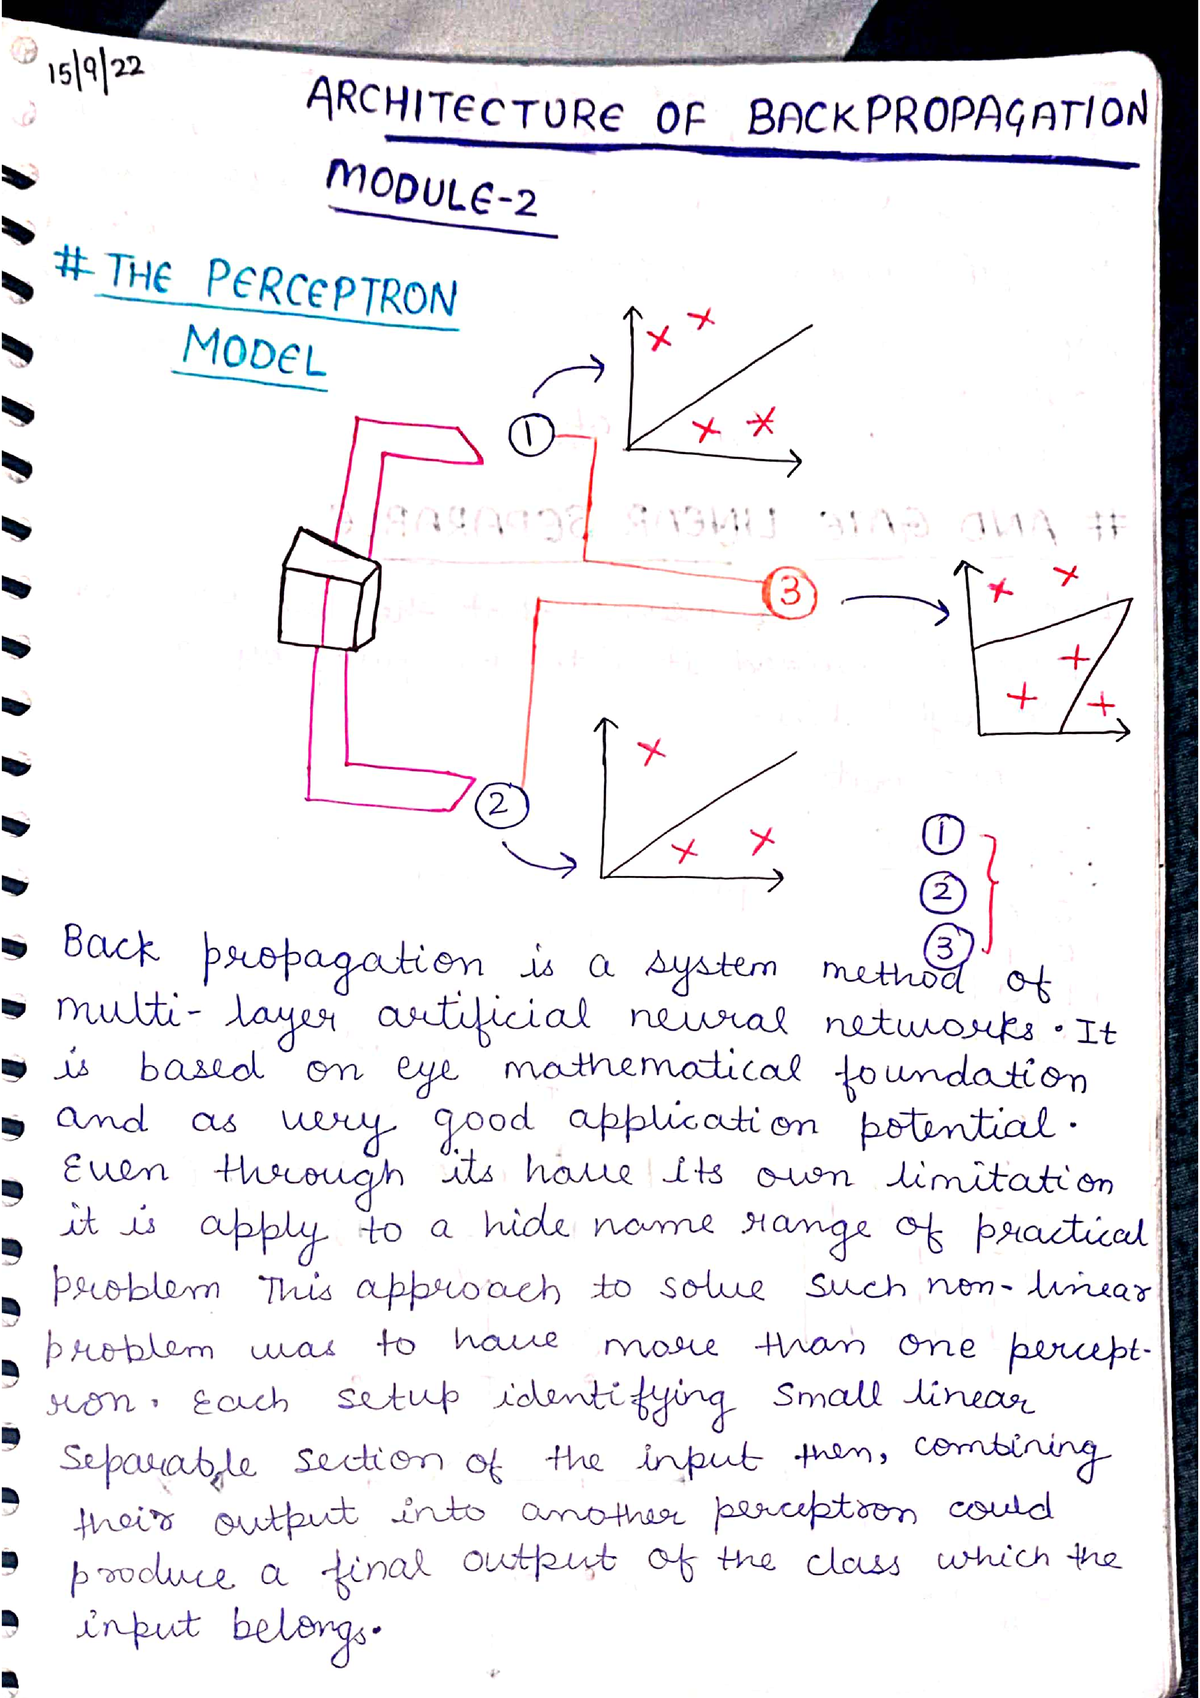 15/9/22
ARCHITECTURE OF BACKPROPAGATION
MODULE-2
# THE PERCEPTRON
MODEL
1
3
2
1
2
3
Back propagation is a system method of
multi-layer artificial neural networks. It
is based on eye mathematical foundation
and as very good application potential.
Even through its have its own limitation
it is apply to a hide name range of practical
problem This approach to solve such non-linear
problem was to have more than one percept-
ron. Each setup identifying small linear
separable section of the input then, combining
their output into another perceptron could
produce a final output of the class which the
input belongs.